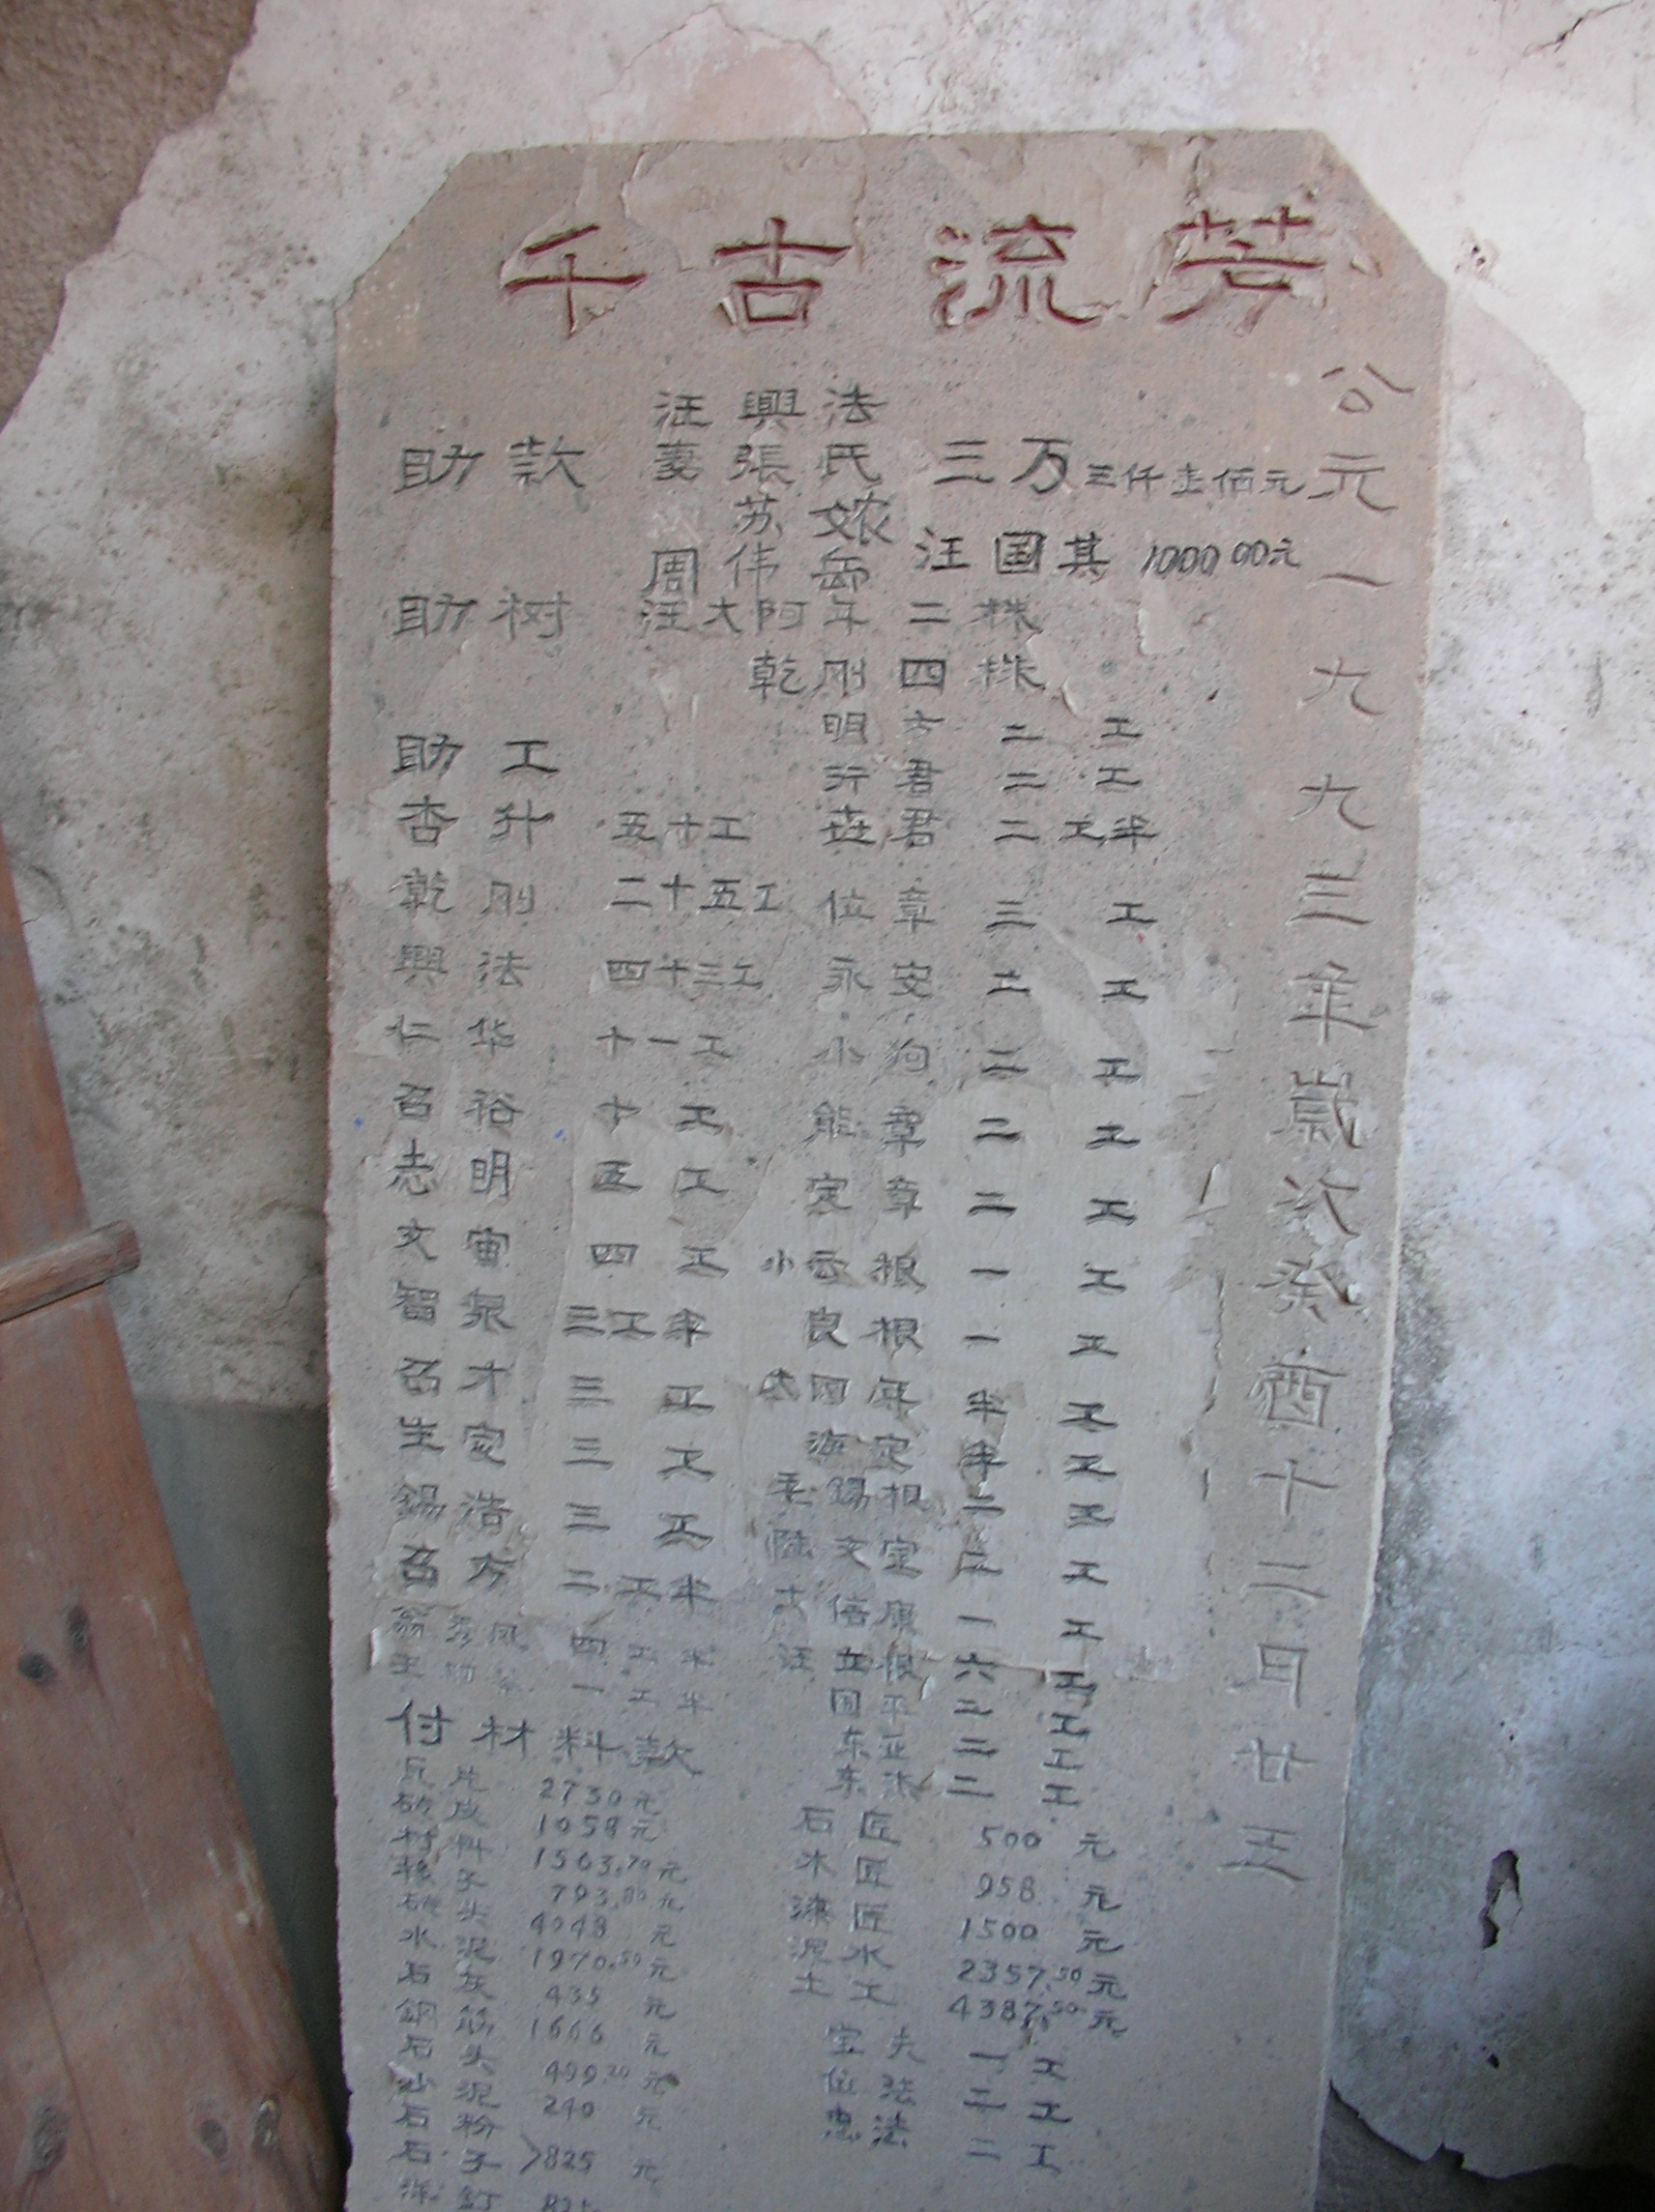 千古流芳
公元一九九三年歲次癸酉十二月廿五
汪興法
助款 妻張氏 三万三仟壹佰元
苏 汪国其 1000 00元
周伟
助树 汪大阿年 二株
乾刚 四株
助工
明方 二 工
沂君 二 工
杏升 五十工
君 二工半
乾刚 二十五工
位章 三 工
興法 四十三工
永安 二 工
仁华 十一工
小狗 二 工
召裕 十工
能章 二 工
志明 五工
定章 二 工
文宙 四工
小云根 一 工
智泉 三工半
良根 一 工
召才 三工
四年 半 工
生定 三工
海定 半 工
錫浩 三工
錫根 二 工
召方 二工半
陆文定 二 工
四工半
信康 一 工
一工半
汪立根 六 工
国平 三 工
付材料款
东 二 工
东 二 工
瓦片 2730元
1058元
石匠 500 元
材料 1563.70元
木匠 958 元
793.80元
漆匠 1500 元
4048 元
泥水 2357.50元
水泥 1970.50元
土工 4387.50元
石灰 435 元
鋼筋 1666 元
宝夫 一工
石头 499.20元
位法 二工
泥 240 元
忠法 二工
石粉
石子 7825 元
洋釘